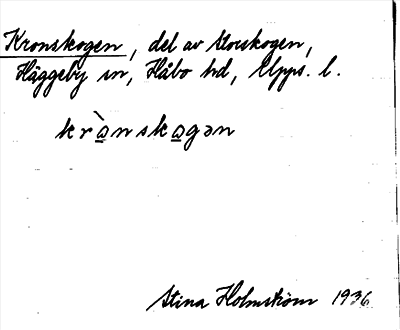 Kronskogen, del av Storskogen,
Häggeby sn, Håbo hd, Upps. l.
krὰnskagən
Stina Holmström 1936